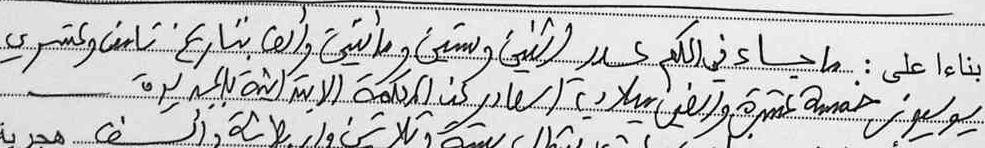 بناءا على : ماجاء في الحكم عدد اثنين وستين ومائتين وألف بتاريخ ثامن وعشري
يوليوز خمسة عشرة وألفين ميلادية الصادر عن المحكمة الابتدائية بالجديدة
ستة وثلاثين وأربعمائة وألف هجرية